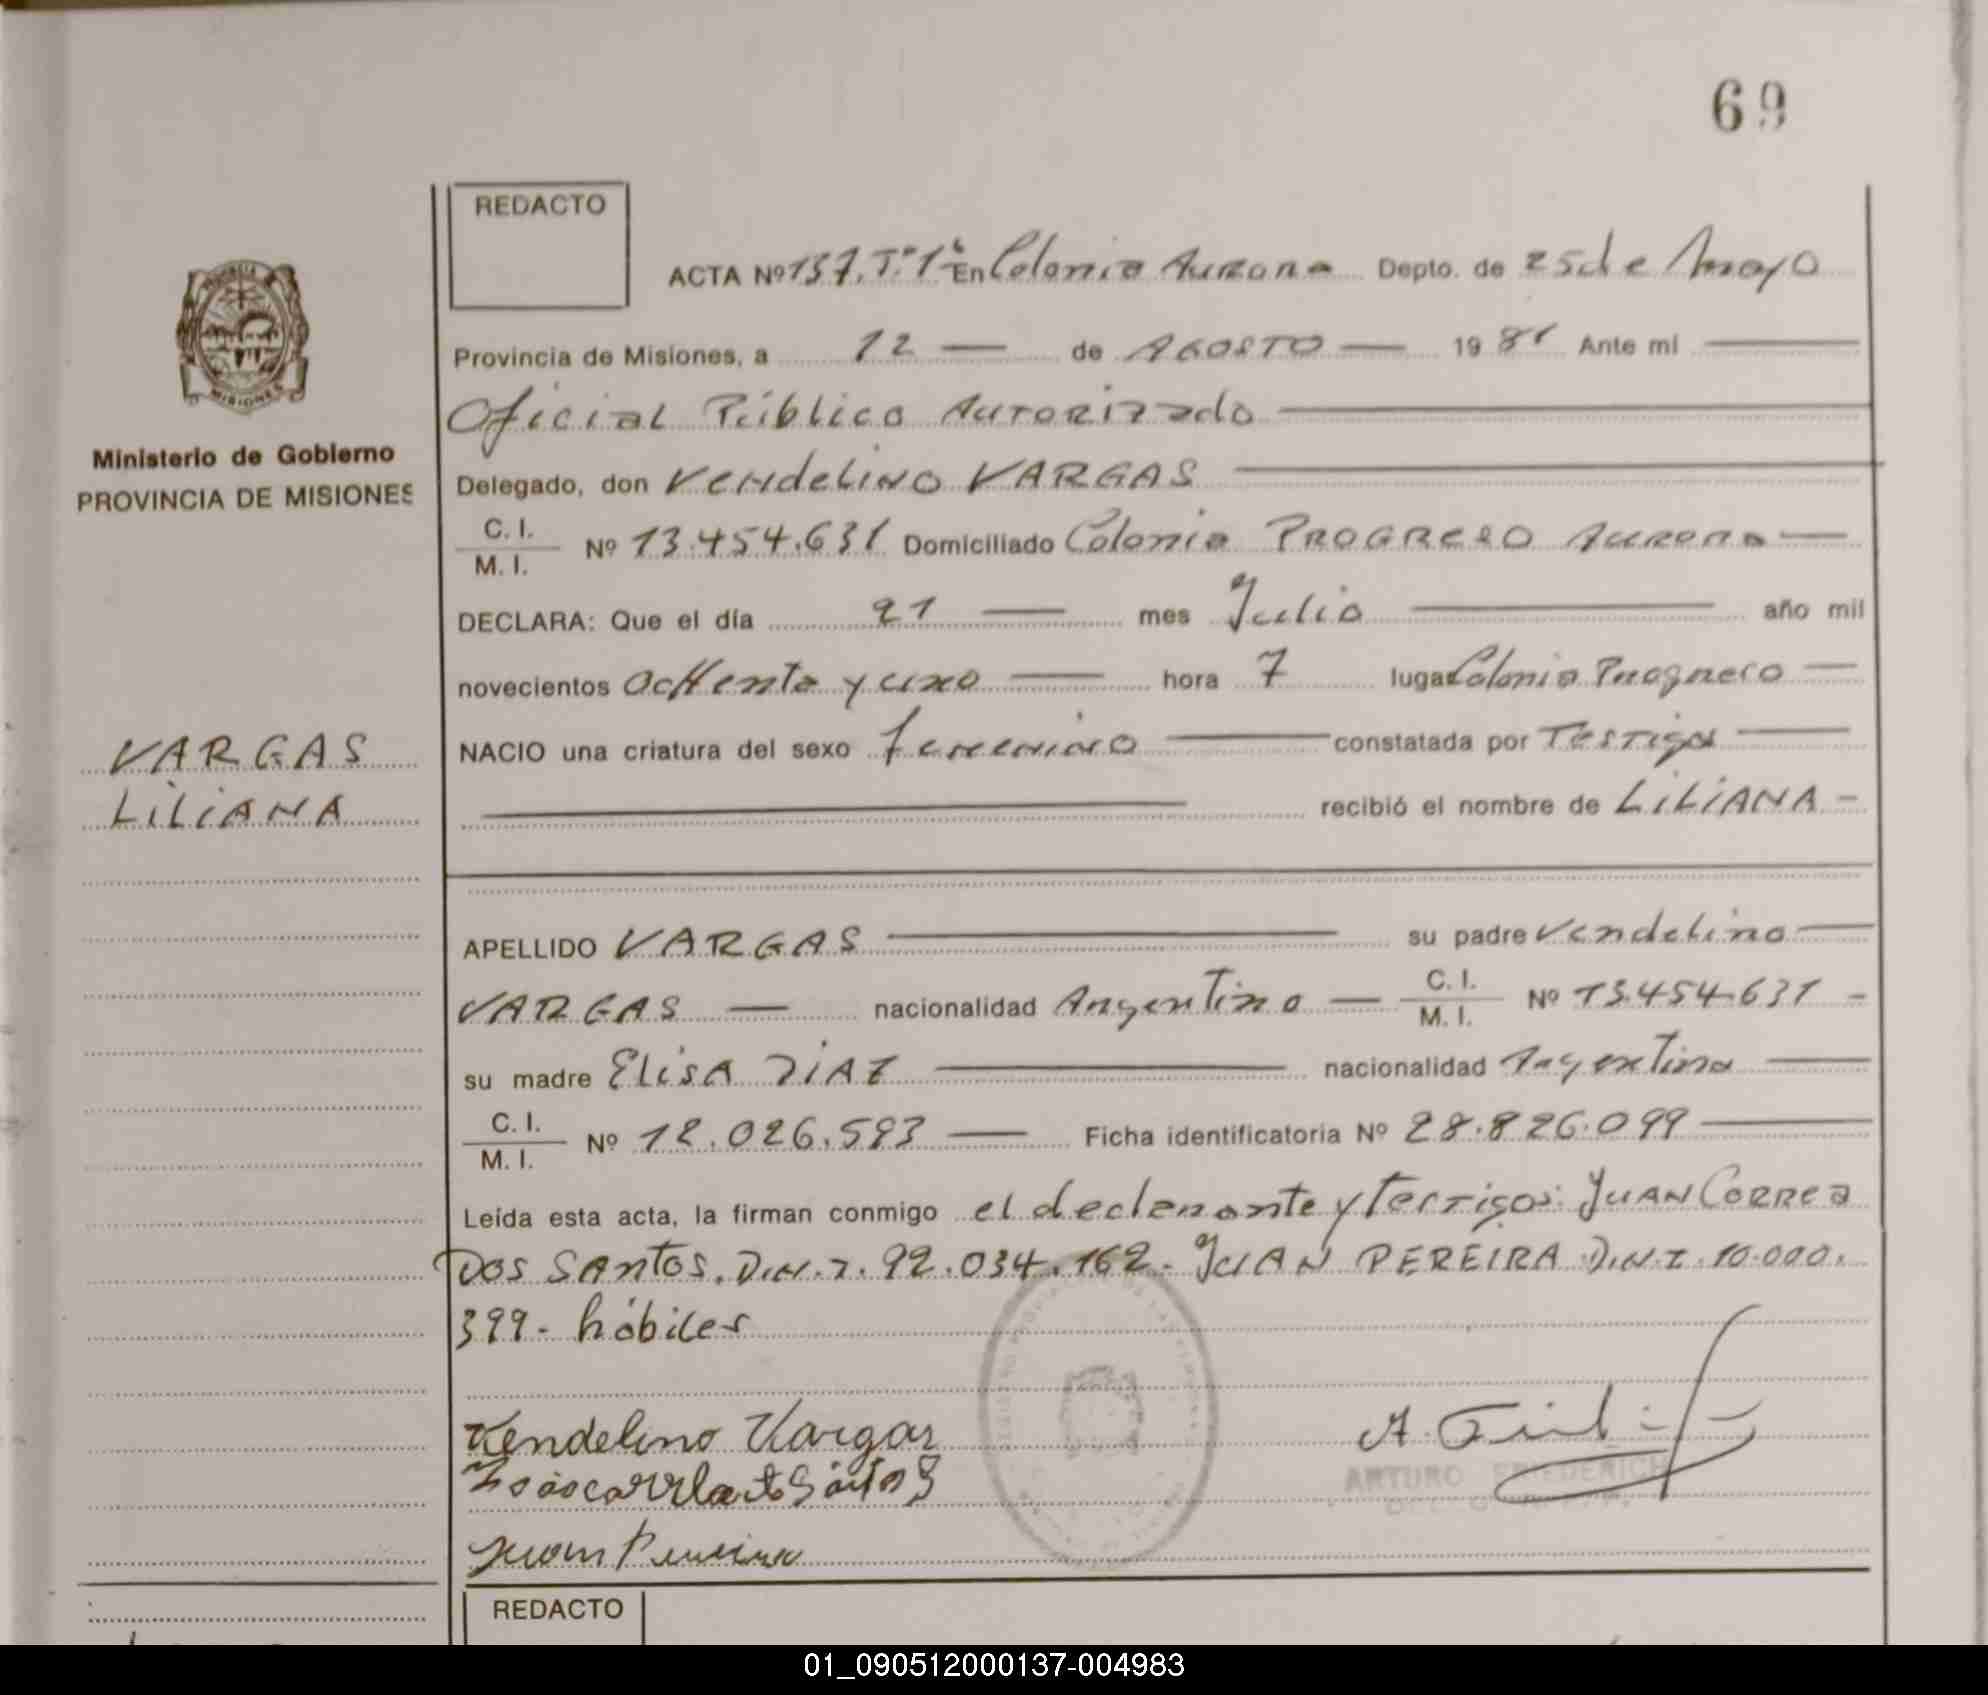 69
REDACTO
ACTA Nº 137. Tº 1º En Colonia Aurora Depto. de 25 de Mayo
Provincia de Misiones, a 12 — de AGOSTO — 1981 Ante mi
Oficial Público Autorizado
Ministerio de Gobierno
PROVINCIA DE MISIONES
Delegado, don Vendelino VARGAS
C. I.
M. I.
Nº 13.454.631 Domiciliado Colonia PROGRESO Aurora —
DECLARA: Que el día 21 — mes Julio — año mil
novecientos ochenta y uno — hora 7 lugar Colonia Progreso —
VARGAS
LILIANA
NACIO una criatura del sexo femenino — constatada por Testigos —
recibió el nombre de LILIANA -
APELLIDO VARGAS — su padre Vendelino —
VARGAS — nacionalidad Argentino — C. I. M. I. Nº 13.454.631 -
su madre ELISA DIAZ — nacionalidad Argentina —
C. I.
M. I.
Nº 12.026.593 — Ficha identificatoria Nº 28.826.099 —
Leída esta acta, la firman conmigo el declarante y Testigos: JUAN CORREA
DOS SANTOS. D.N.I. 92.034.162. JUAN PEREIRA D.N.I. 10.000.
399- hábiles
Vendelino Vargas
Juan Pereira
ARTURO FRIEDERICH
REDACTO
01_090512000137-004983